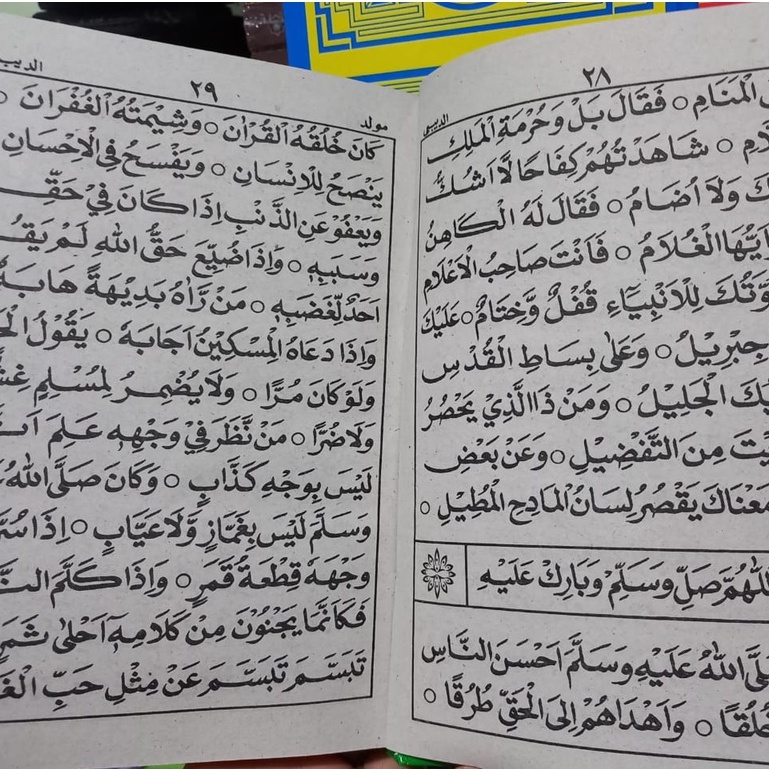 ٢٨
الديبعي
الْمَنَامِ ○ فَقَالَ بَلْ وَحُرْمَةِ الْمَلِكِ
○ شَاهَدْتُهُمْ كِفَاحًا لَّا اَشُكُّ
وَلَا اُضَامُ ○ فَقَالَ لَهُ الْكَاهِنُ
اَيُّهَا الْغُلَامُ ○ فَاَنْتَ صَاحِبُ الْاَعْلَامِ
لِلْاَنْبِيَآءِ قُفْلٌ وَّخِتَامٌ ○ عَلَيْكَ
جِبْرِيْلُ ○ وَعَلٰى بِسَاطِ الْقُدْسِ
الْجَلِيْلُ ○ وَمَنْ ذَا الَّذِيْ يَحْصُرُ
مِنَ التَّفْضِيْلِ ○ وَعَنْ بَعْضِ
مَعْنَاكَ يَقْصُرُ لِسَانُ الْمَادِحِ الْمُطِيْلِ ○
اَللّٰهُمَّ صَلِّ وَسَلِّمْ وَبَارِكْ عَلَيْهِ
صَلَّى اللّٰهُ عَلَيْهِ وَسَلَّمَ اَحْسَنَ النَّاسِ
خُلُقًا ○ وَاَهْدَاهُمْ اِلَى الْحَقِّ طُرُقًا ○
مولد ٢٩
كَانَ خُلُقُهُ الْقُرْاٰنَ ○ وَشِيْمَتُهُ الْغُفْرَانَ ○
يَنْصَحُ لِلْاِنْسَانِ ○ وَيَفْسَحُ فِى الْاِحْسَانِ
وَيَعْفُوْ عَنِ الذَّنْبِ اِذَا كَانَ فِيْ حَقِّهٖ
وَسَبَبِهٖ ○ وَاِذَا ضُيِّعَ حَقُّ اللّٰهِ لَمْ
اَحَدٌ لِّغَضَبِهٖ ○ مَنْ رَّاٰهُ بَدِيْهَةً هَابَهٗ
وَاِذَا دَعَاهُ الْمِسْكِيْنُ اَجَابَهٗ ○ يَقُوْلُ
وَلَوْ كَانَ مُرًّا ○ وَلَا يُضْمِرُ لِمُسْلِمٍ
وَلَا ضُرًّا ○ مَنْ نَّظَرَ فِيْ وَجْهِهٖ عَلِمَ
لَيْسَ بِوَجْهِ كَذَّابٍ ○ وَكَانَ صَلَّى اللّٰهُ
وَسَلَّمَ لَيْسَ بِغَمَّازٍ وَّلَا عَيَّابٍ ○ اِذَا سُرَّ
وَجْهَهٗ قِطْعَةُ قَمَرٍ ○ وَاِذَا كَلَّمَ
فَكَاَنَّمَا يَجْنُوْنَ مِنْ كَلَامِهٖٓ اَحْلٰى
تَبَسَّمَ تَبَسَّمَ عَنْ مِثْلِ حَبِّ